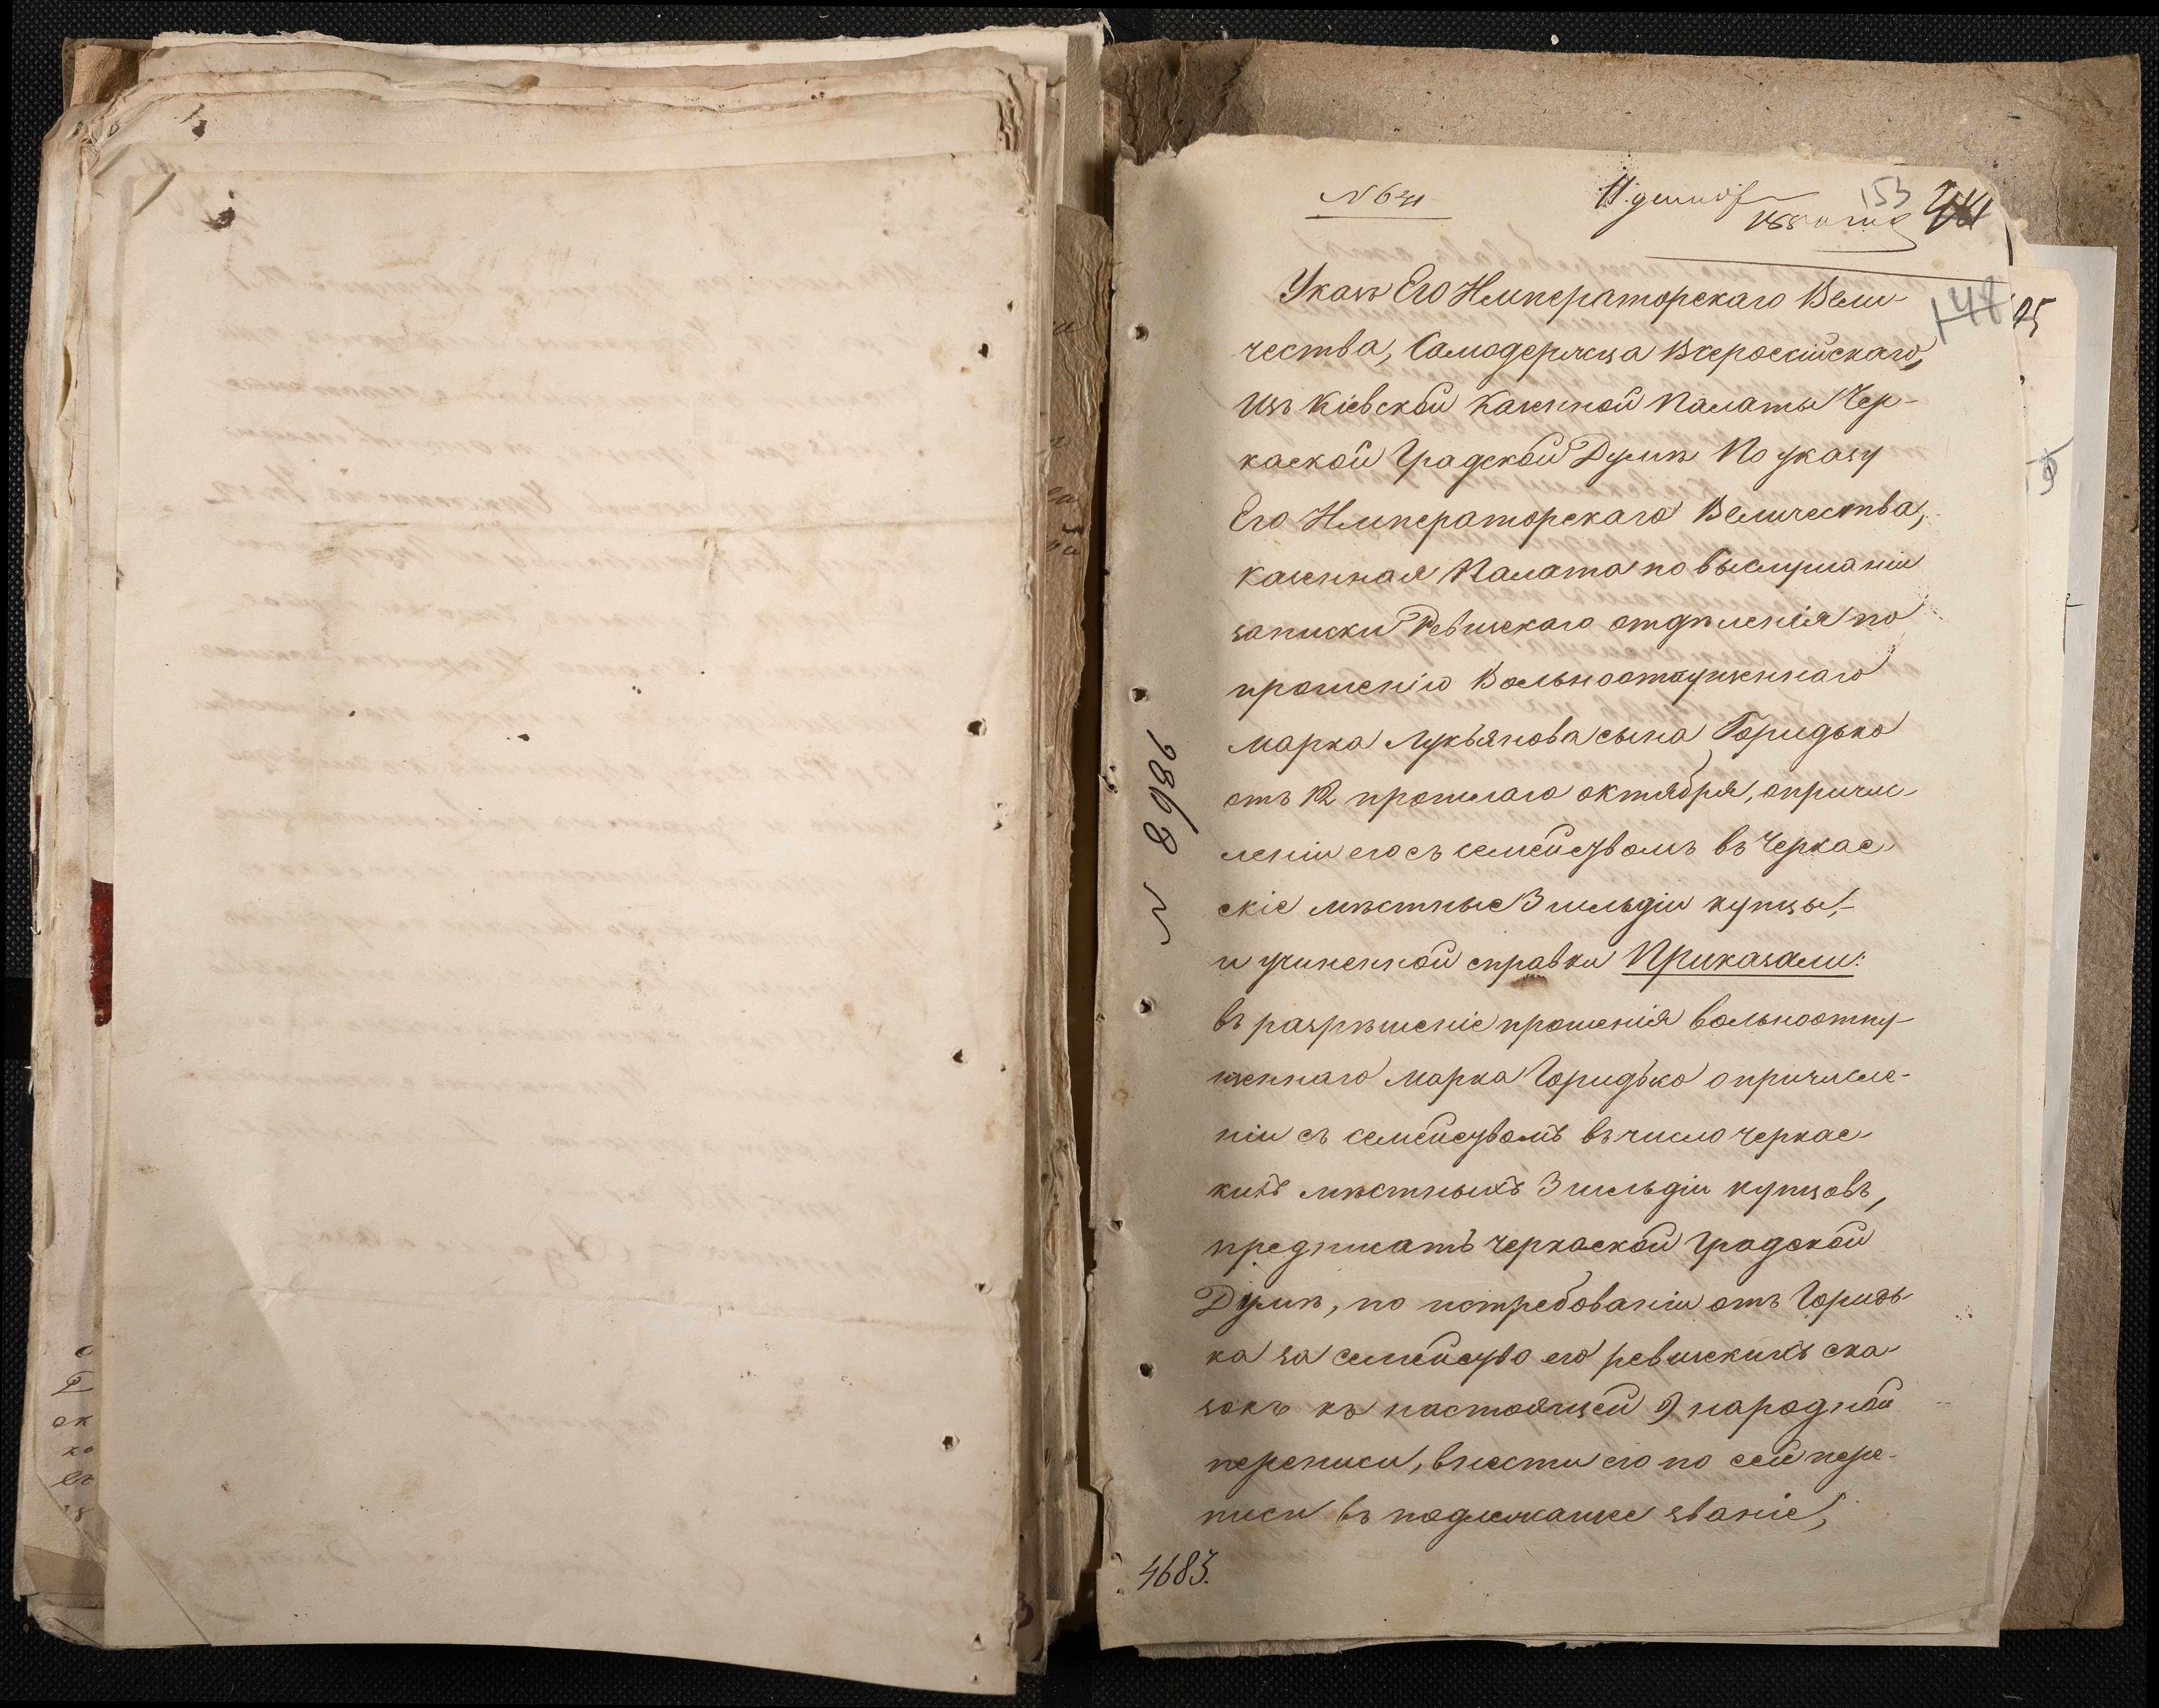 153
148
25
Указъ Его Императорскаго Вели-
чества, Самодержца Всероссійскаго,
изъ Кіевской Казенной Палаты Чер-
каской Градской Думѣ По указу
Его Императорскаго Величества,
Казенная Палата по выслушаніи
записки Ревизскаго отдѣленія по
прошенію Вольноотпущеннаго
Марка Лукьянова сына Горидько
отъ 12 прошлаго октября, о причис-
леніи его съ семействомъ въ Черкас
скіе мѣстные 3 гильдіи купцы,-
и учиненной справки Приказали:
въ разрѣшеніе прошенія вольноотпу-
щеннаго Марка Горидько о причисле-
ніи съ семействомъ въ число черкас-
кихъ мѣстныхъ 3 гильдіи купцовъ,
предписать Черкаской Градской
Думѣ, по истребованіи отъ Горидь-
ка за семейство его ревизскихъ ска-
зокъ къ настоящей 9 народной
переписи, внести его по сей пере-
писи въ подлежащее званіе,
4683.
N 8986